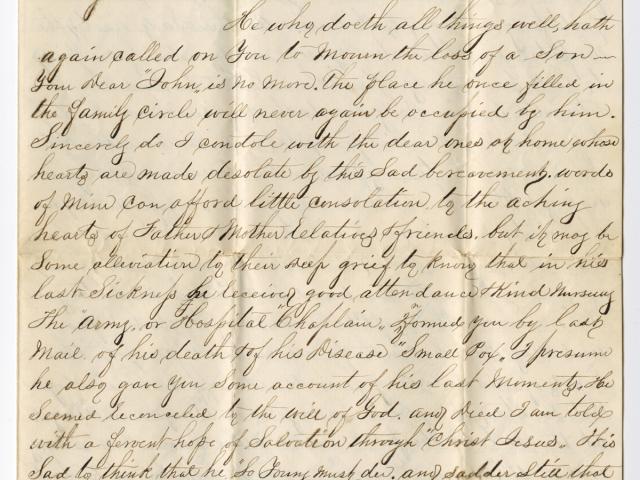 He who doeth all things well, hath
again called on You to Mourn the loss of a Son —
Your Dear "John" is no more. the place he once filled in
the family circle will never again be occupied by him.
Sincerely do I condole with the dear ones at home whose
hearts are made desolate by this Sad bereavement. words
of Mine can afford little consolation to the aching
hearts of Father & Mother relatives & friends. but it may be
Some alleviation to their deep grief to know that in his
last Sickness he received good attendance & Kind Nursing
The "Army" or Hospital "Chaplain" informed you by last
Mail of his death & of his Disease "Small Pox". I presume
he also gave You Some account of his last Moments. He
Seemed reconciled to the will of God. and Died I am told
with a fervent hope of Salvation through "Christ Jesus". It is
Sad to think that he "So Young must die. and sadder Still that